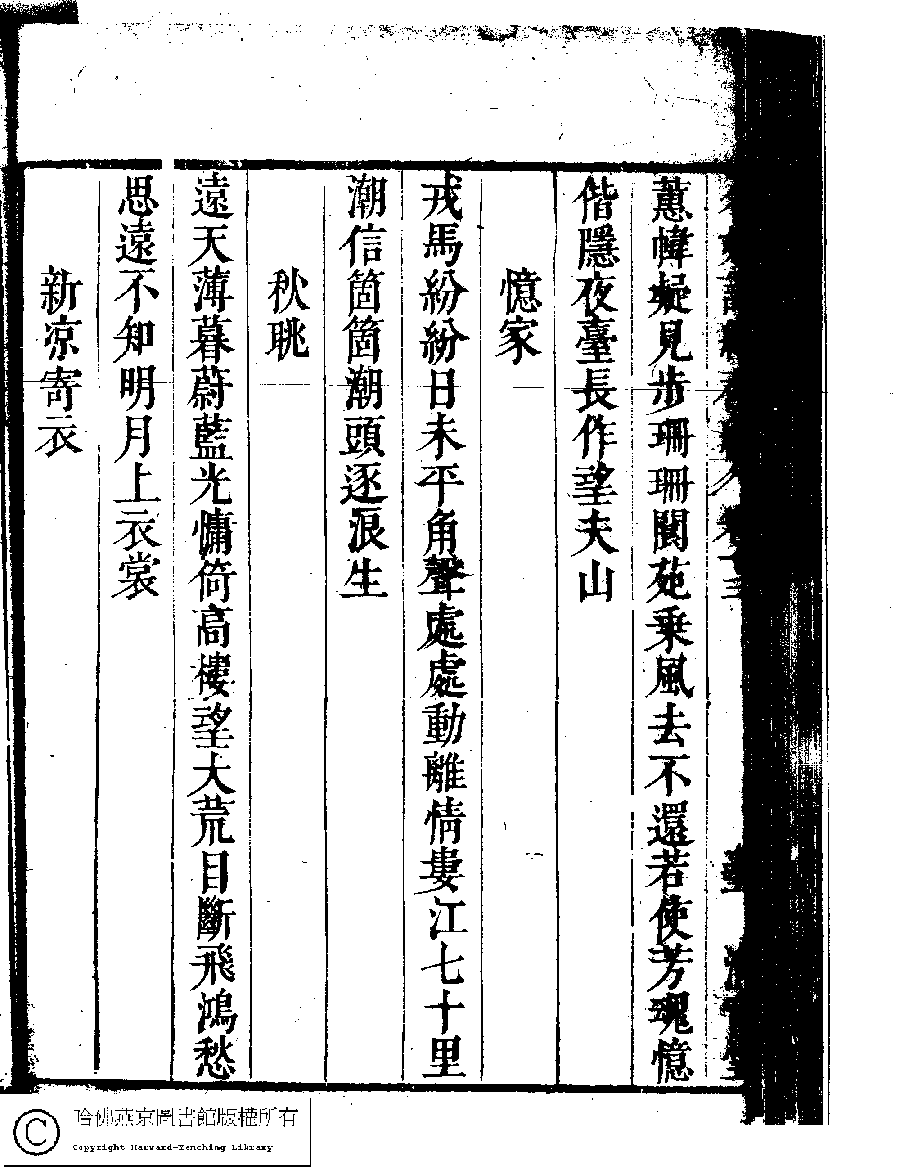 蕙幃疑見步珊珊閬苑乗風去不還若使芳魂憶
偕隱夜臺長作望夫山
憶家
戎馬紛紛日未平角聲處處動離情婁江七十里
潮信箇箇潮頭逐浪生
秋眺
遠天薄暮蔚藍光慵倚高樓望大荒目斷飛鴻愁
思遠不知明月上衣裳
新凉寄衣
哈佛燕京圖書館版權所有
Copyright Harvard-Yenching Library